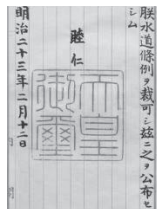 朕水道條例ヲ裁可シ茲ニ之ヲ公布セ
シム
睦仁
天皇
御璽
明治二十三年二月十二日